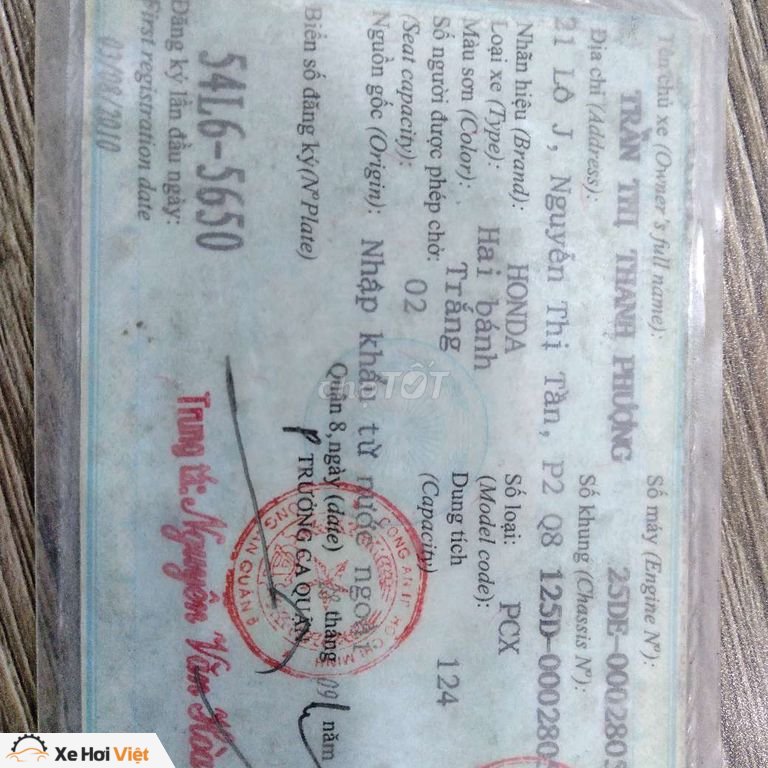 Tên chủ xe (Owner's full name):
TRẦN THỊ THANH PHƯỢNG
Số máy (Engine Nº):
25DE-0002805
Địa chỉ (Address):
Số khung (Chassis Nº):
21 Lô J, Nguyễn Thị Tần, P2 Q8
125D-000280
Nhãn hiệu (Brand): HONDA
Số loại: PCX
(Model code):
Loại xe (Type): Hai bánh
Màu sơn (Color): Trắng
Dung tích 124
(Capacity)
Số người được phép chở: 02
(Seat capacity):
Nguồn gốc (Origin): Nhập khẩu từ nước ngoài
Biển số đăng ký(Nº Plate)
Quận 8, ngày (date) tháng 09 năm
TRƯỞNG CA QUẬN
54L6-5650
Đăng ký lần đầu ngày:
First registration date
03/08/2010
Trung tá: Nguyễn Văn
CÔNG AN
QUẬN 8
chợ TỐT
Xe Hơi Việt